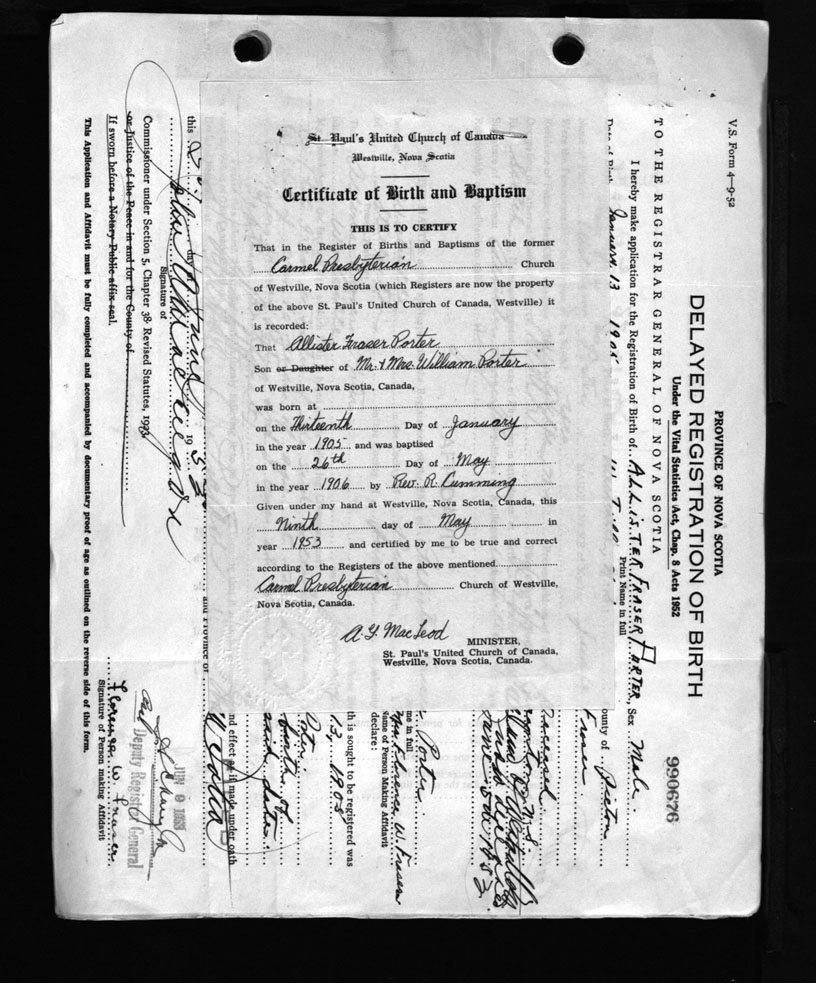 St. Paul's United Church of Canada
Westville, Nova Scotia
Certificate of Birth and Baptism
THIS IS TO CERTIFY
That in the Register of Births and Baptisms of the former
Carmel Presbyterian Church
of Westville, Nova Scotia (which Registers are now the property
of the above St. Paul's United Church of Canada, Westville) it
is recorded:
That Allister Fraser Porter
Son or Daughter of Mr. & Mrs. William Porter
of Westville, Nova Scotia, Canada,
was born at
on the Thirteenth Day of January
in the year 1905 and was baptised
on the 26th Day of May
in the year 1906 by Rev. R. Cumming
Given under my hand at Westville, Nova Scotia, Canada, this
Ninth day of May in
year 1953 and certified by me to be true and correct
according to the Registers of the above mentioned
Carmel Presbyterian Church of Westville,
Nova Scotia, Canada.
A. Y. MacLeod
MINISTER,
St. Paul's United Church of Canada,
Westville, Nova Scotia, Canada.
V.S. Form 4—9-52
PROVINCE OF NOVA SCOTIA
DELAYED REGISTRATION OF BIRTH
990676
Under the Vital Statistics Act, Chap. 8 Acts 1952
TO THE REGISTRAR GENERAL OF NOVA SCOTIA
I hereby make application for the Registration of Birth of ALLISTER FRASER PORTER, Sex Male
Print Name in full
January 13 1905
ounty of Pictou
Fraser
Deceased
N.S.
Porter
me in full
Mrs. Florence W. Fraser
Name of Person Making Affidavit
declare:
th is sought to be registered was
13, 1905
birth of
and date
nd effect as if made under oath
and Province of
this day of June 19 53
Signature of
Commissioner under Section 5, Chapter 38 Revised Statutes, 19
or Justice of the Peace in and for the County of
If sworn before a Notary Public affix seal.
JUN 9 1953
Deputy Registrar General
Florence W. Fraser
Signature of Person making Affidavit
This Application and Affidavit must be fully completed and accompanied by documentary proof of age as outlined on the reverse side of this form.